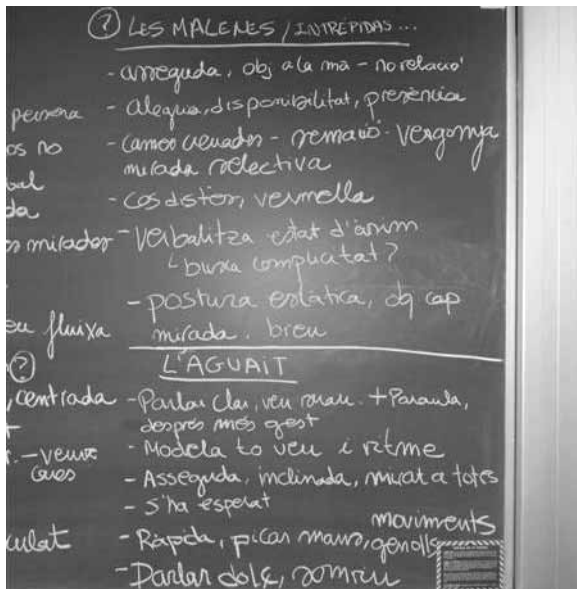 ? LES MALENES / INTRÉPIDAS...
- asseguda, obj a la mà - no relació
- alegria, disponibilitat, presència
- cames creuades - remació. vergonya
mirada selectiva
- cos distès, vermella
- Verbalitza estat d'ànim
busca complicitat?
- postura estàtica, dq cap
mirada. breu
L'AGUAIT
- Parlar clar, veu suau. + Paraula,
després més gest
- Modela to veu i ritme
- Asseguda, inclinada, mirat a totes
- S'ha esperat
moviments
- Ràpida, picar mans, genolls
- Parlar dolç, somriu
persona
os no
da
mirador
eu fluixa
?
, centrada
- veure
cares
culat